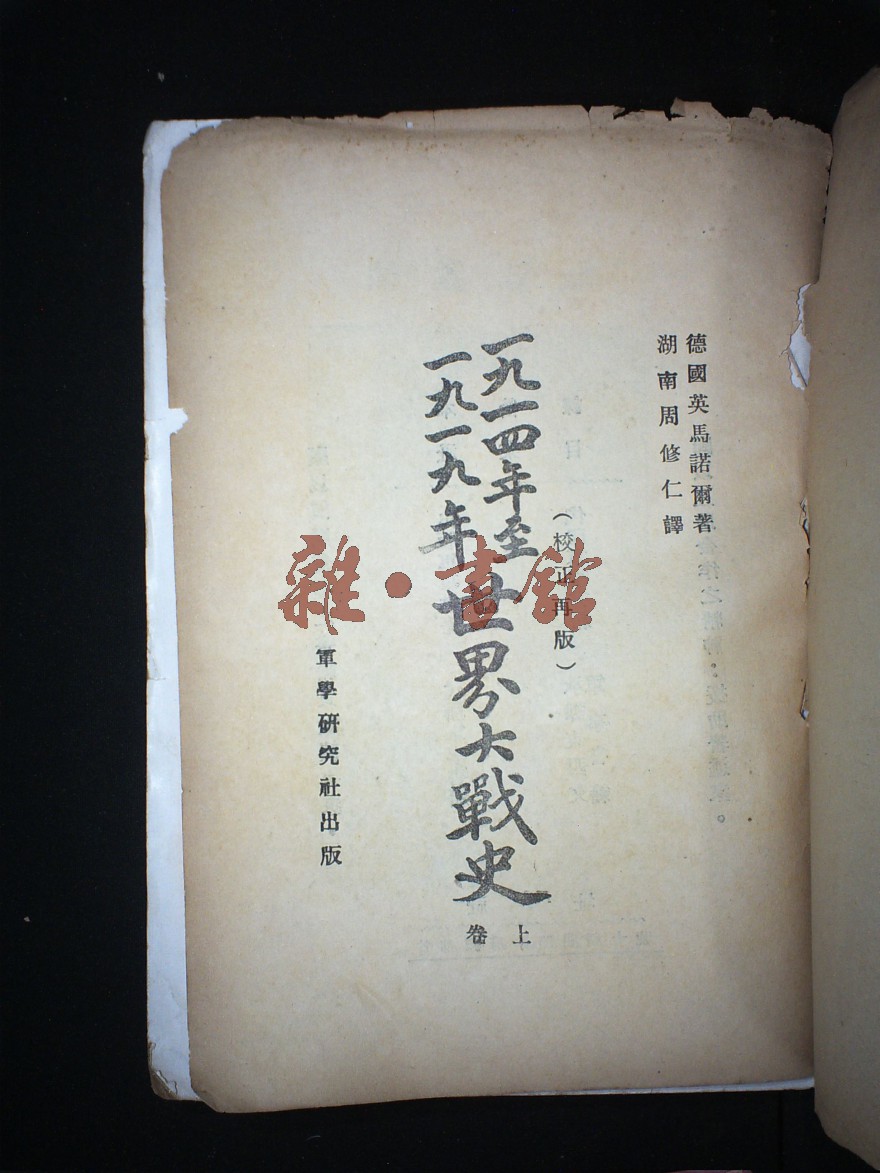 德國英馬諾爾著
湖南周修仁譯
(校正再版)
一九一四年至
一九一九年
世界大戰史
上卷
軍學研究社出版
雜·書館